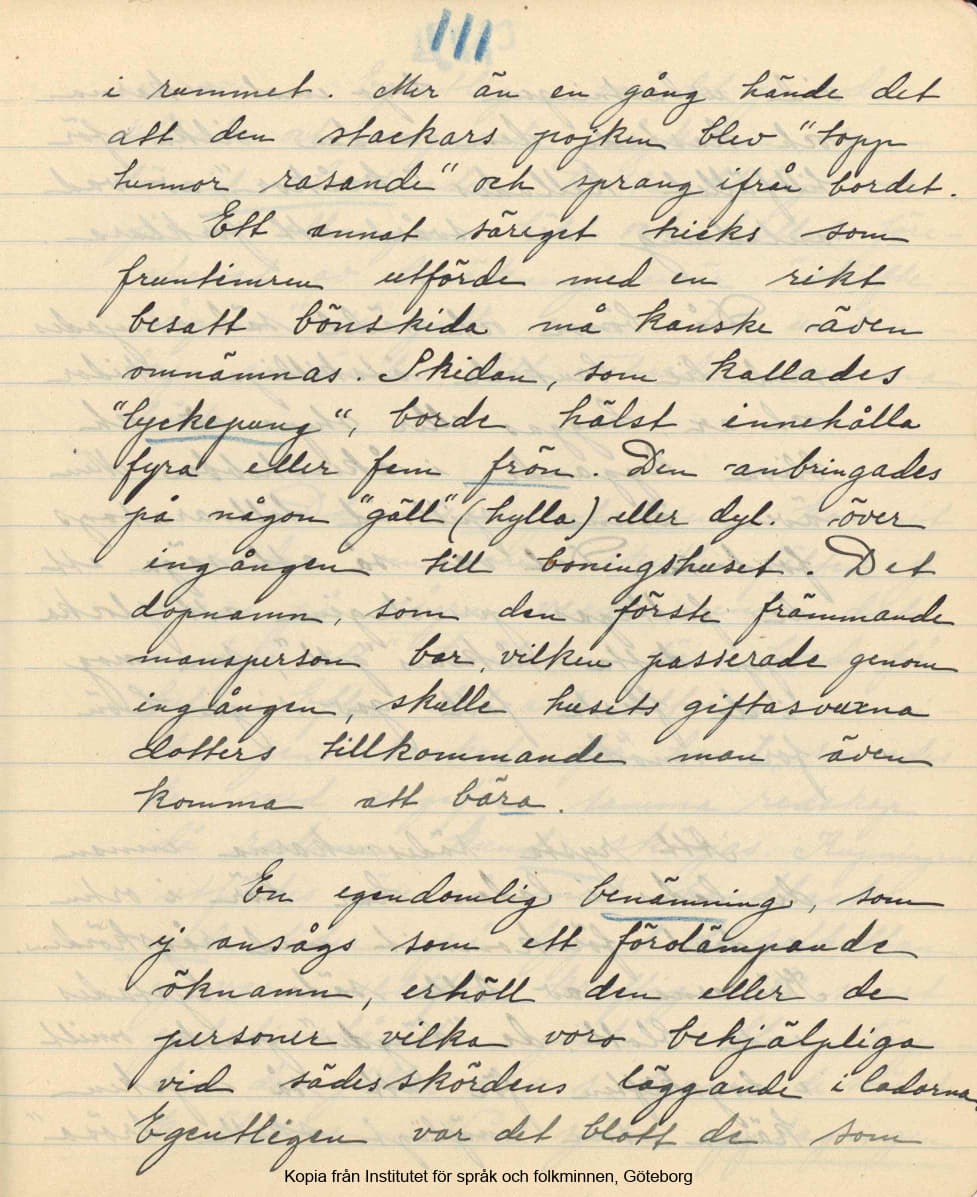 111
i rummet. Mer än en gång hände det
att den stackars pojken blev "topp
tunnor rasande" och sprang ifrån bordet.
Ett annat säreget tricks som
fruntimren utförde med en rikt
besatt bönskida må kanske även
omnämnas. Skidan, som kallades
"lyckepung", borde hälst innehålla
fyra eller fem frön. Den anbringades
på någon "gäll" (hylla) eller dyl. över
ingången till boningshuset. Det
dopnamn, som den förste främmande
mansperson bar, vilken passerade genom
ingången, skulle husets giftasvuxna
dotters tillkommande man även
komma att bära.
En egendomlig benämning, som
ej ansågs som ett förolämpande
öknamn, erhöll den eller de
personer vilka voro behjälpliga
vid sädesskördens läggande i ladorna.
Egentligen var det blott de som
Kopia från Institutet för språk och folkminnen, Göteborg